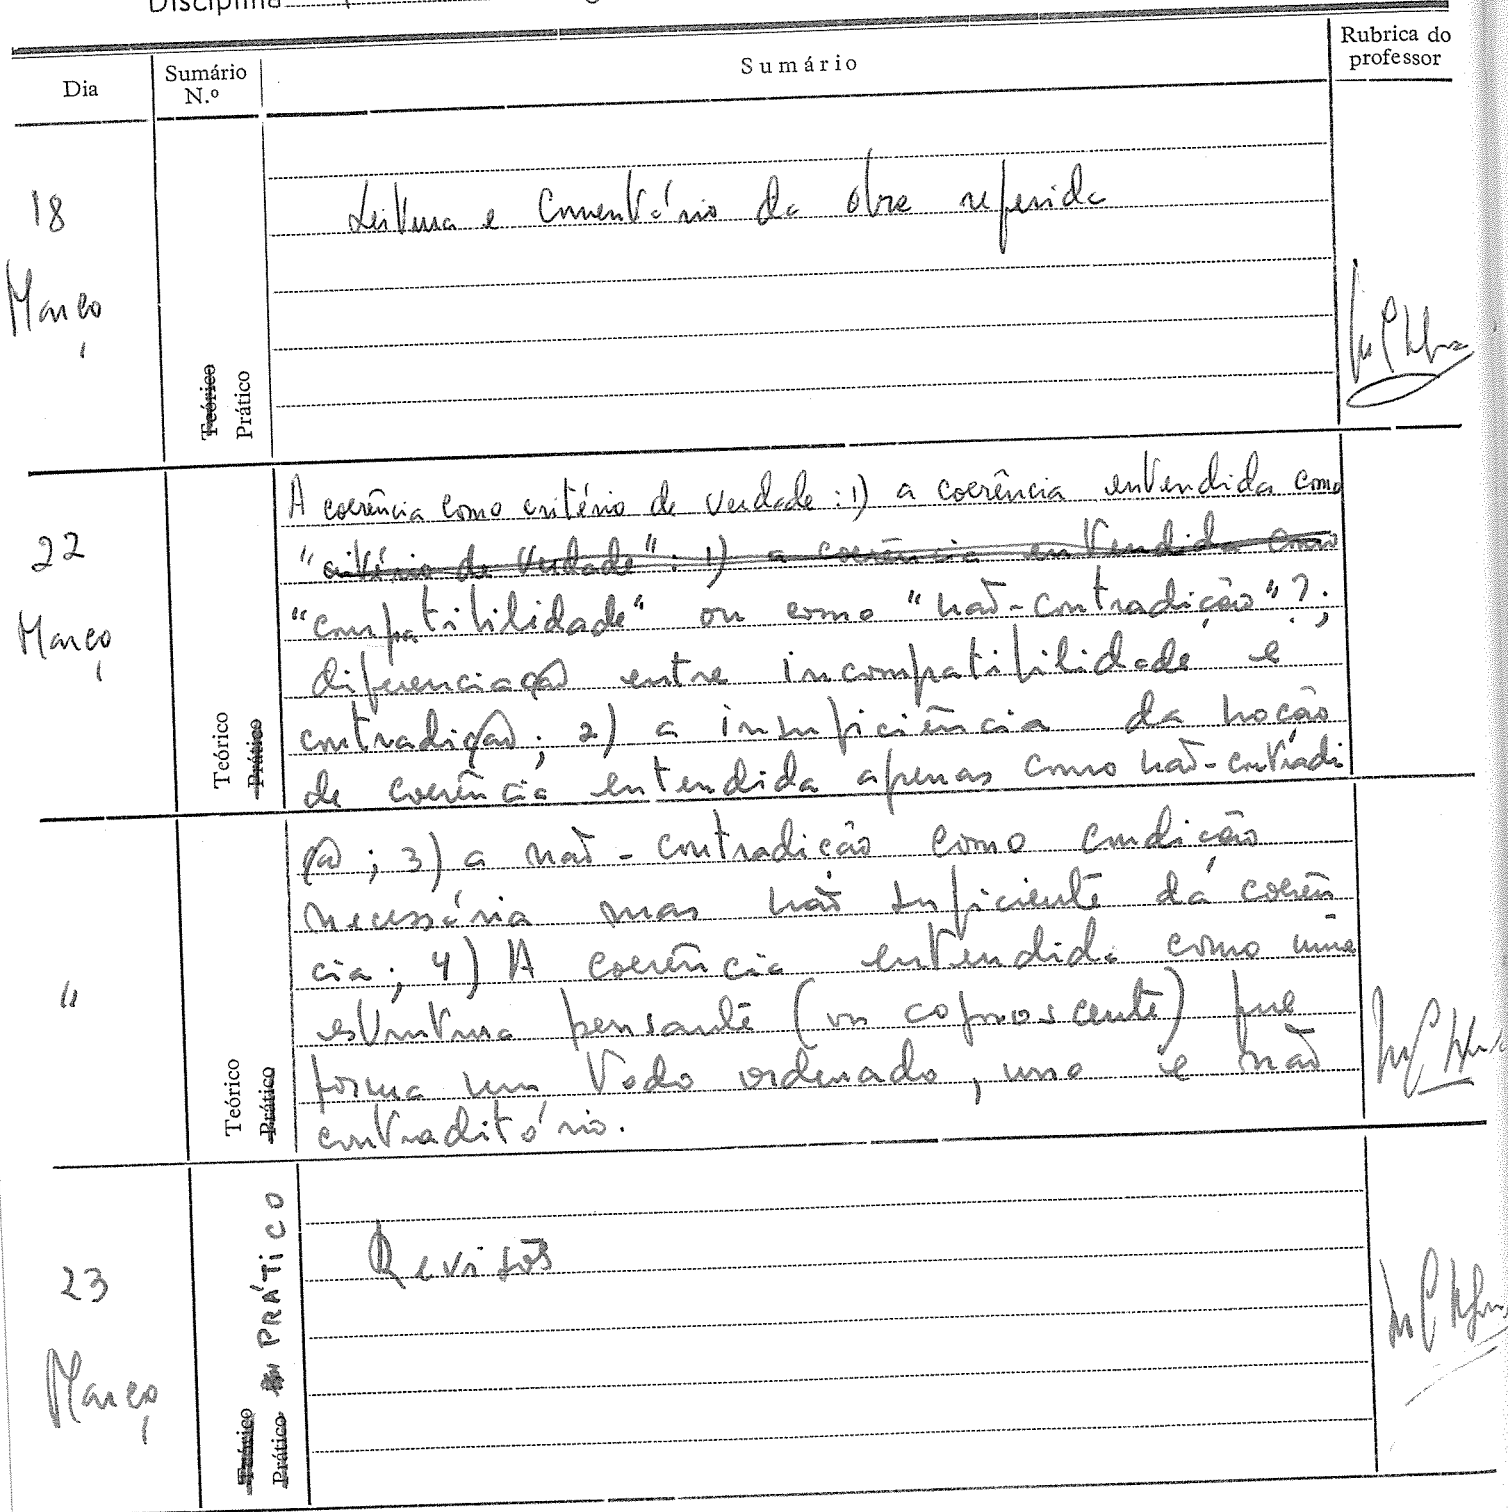 Disciplina
Dia
Sumário
N.º
Sumário
Rubrica do
professor
18
Março
Teórico
Prático
Leitura e Comentário da obra referida
22
Março
Teórico
Prático
A coerência como critério de verdade : 1) a coerência entendida como
"critério de verdade" : 1) a coerência entendida como
"compatibilidade" ou como "não-contradição"?;
diferenciação entre incompatibilidade e
contradição; 2) a insuficiência da noção
de coerência entendida apenas como não-contradi
"
Teórico
Prático
ção ; 3) a não-contradição como condição
necessária mas não suficiente da coerên
cia; 4) A coerência entendida como uma
estrutura pensante (ou cognoscente) que
forma um todo ordenado, uno e não
contraditório.
23
Março
Teórico
Prático
PRÁTICO
Revisões